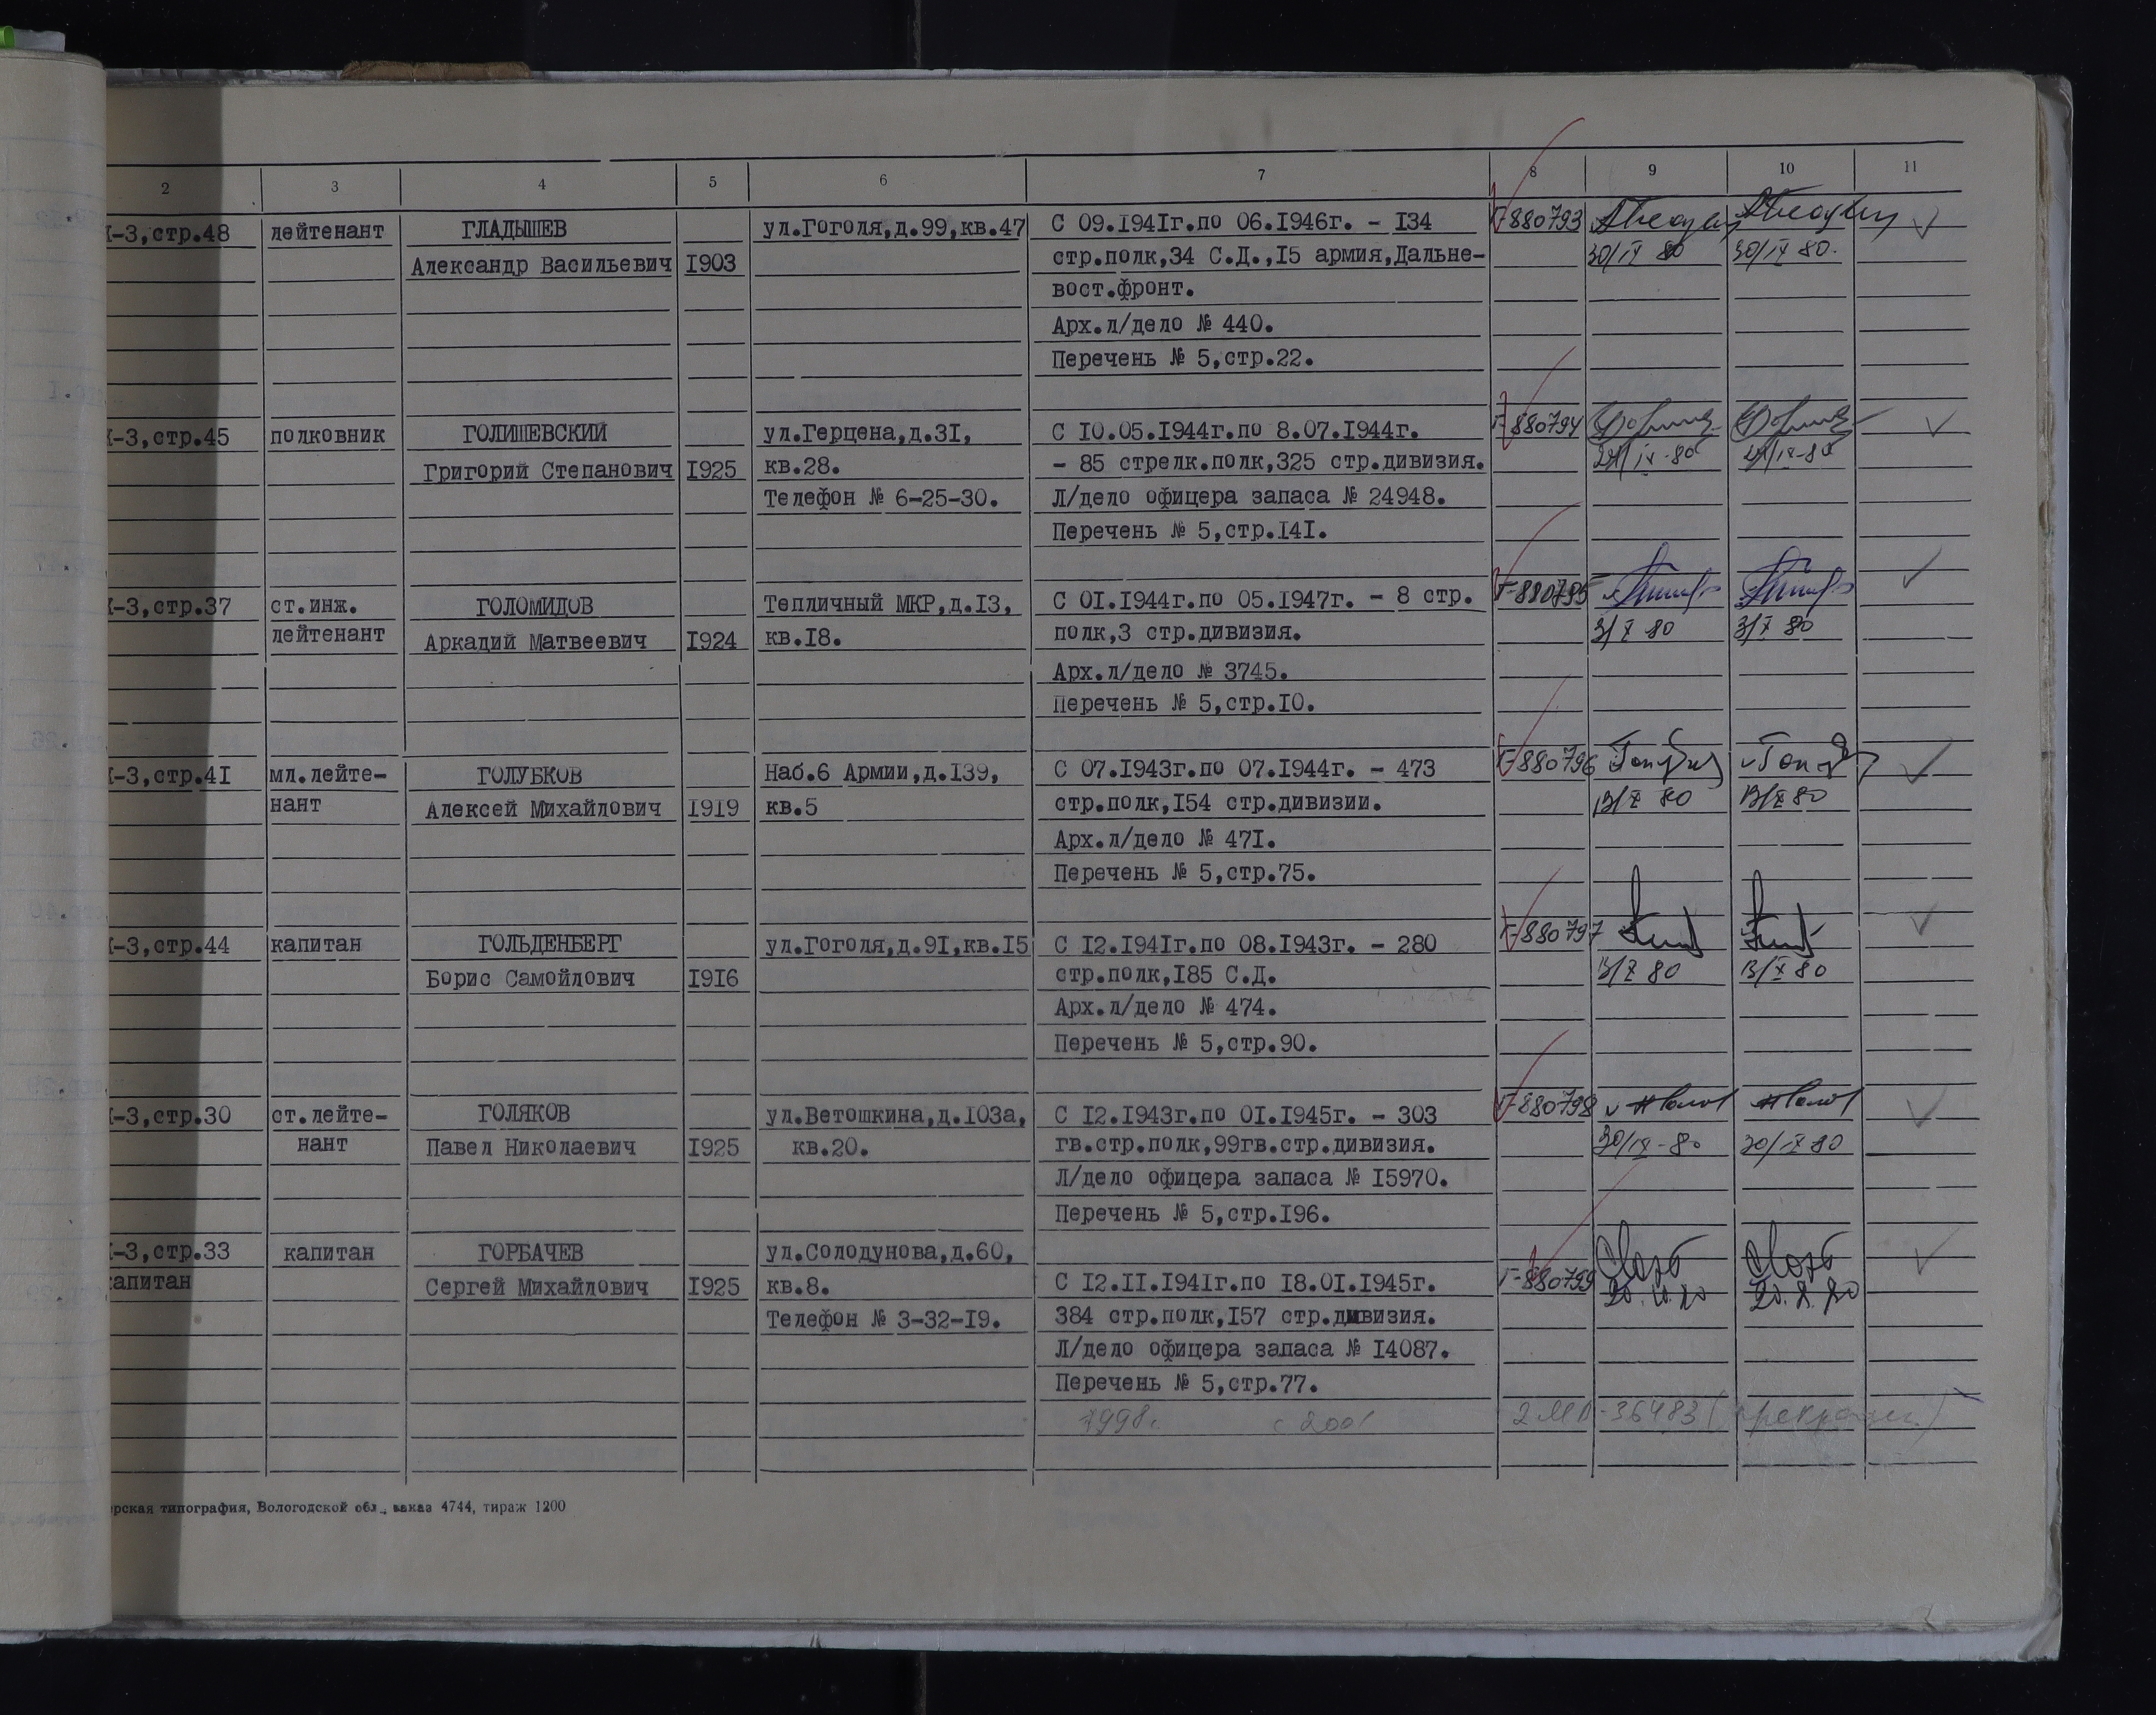 2 3 4 5 6 7 8 9 10 11
-3,стр.48 лейтенант ГЛАДЫШЕВ ул.Гоголя,д.99,кв.47 С 09.1941г.по 06.1946г. - 134 Г-880793
Александр Васильевич 1903 стр.полк,34 С.Д.,15 армия,Дальне- 30/IX 80 30/IX 80.
вост.фронт.
Арх.л/дело № 440.
Перечень № 5,стр.22.
-3,стр.45 полковник ГОЛИШЕВСКИЙ ул.Герцена,д.31, С 10.05.1944г.по 8.07.1944г. Г-880794
Григорий Степанович 1925 кв.28. - 85 стрелк.полк,325 стр.дивизия.
Телефон № 6-25-30. Л/дело офицера запаса № 24948.
Перечень № 5,стр.141.
-3,стр.37 ст.инж. ГОЛОМИДОВ Тепличный МКР,д.13, С 01.1944г.по 05.1947г. - 8 стр. Г-880795
лейтенант Аркадий Матвеевич 1924 кв.18. полк,3 стр.дивизия. 3/X 80 3/X 80
Арх.л/дело № 3745.
Перечень № 5,стр.10.
-3,стр.41 мл.лейте- ГОЛУБКОВ Наб.6 Армии,д.139, С 07.1943г.по 07.1944г. - 473 Г-880796
нант Алексей Михайлович 1919 кв.5 стр.полк,154 стр.дивизии. 13/X 80 13/X 80
Арх.л/дело № 471.
Перечень № 5,стр.75.
-3,стр.44 капитан ГОЛЬДЕНБЕРГ ул.Гоголя,д.91,кв.15 С 12.1941г.по 08.1943г. - 280 Г-880797
Борис Самойлович 1916 стр.полк,185 С.Д. 13/X 80 13/X 80
Арх.л/дело № 474.
Перечень № 5,стр.90.
-3,стр.30 ст.лейте- ГОЛЯКОВ ул.Ветошкина,д.103а, С 12.1943г.по 01.1945г. - 303 Г-880798
нант Павел Николаевич 1925 кв.20. гв.стр.полк,99гв.стр.дивизия. 30/IX-80 30/IX 80
Л/дело офицера запаса № 15970.
Перечень № 5,стр.196.
-3,стр.33 капитан ГОРБАЧЕВ ул.Солодунова,д.60,
апитан Сергей Михайлович 1925 кв.8. С 12.11.1941г.по 18.01.1945г. Г-880799 20.10.80 20.X.80
Телефон № 3-32-19. 384 стр.полк,157 стр.дивизия.
Л/дело офицера запаса № 14087.
Перечень № 5,стр.77.
1998г. с 2001 36483
рская типография, Вологодской обл., заказ 4744, тираж 1200